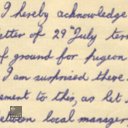 I hereby acknowledge
etter of 29th July ter
of ground for pigeon
I am surprised there
sent to this, as let
between local manager